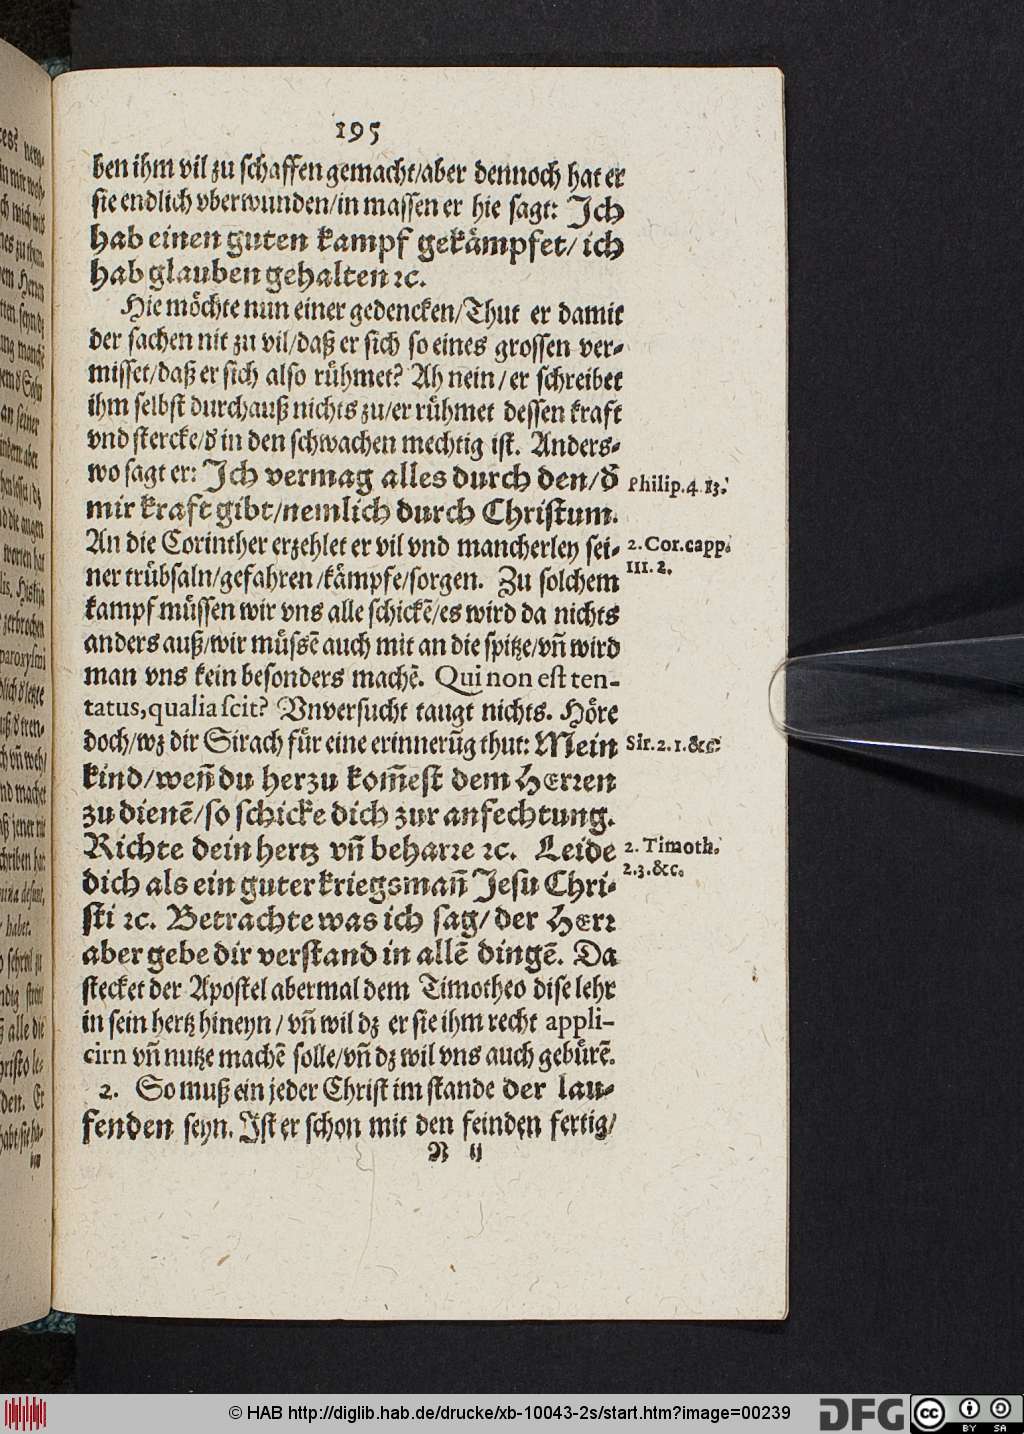 195
ben ihm vil zu schaffen gemacht/aber dennoch hat er
sie endlich vberwunden/in massen er hie sagt: Ich
hab einen guten kampf gekämpfet/ ich
hab glauben gehalten ꝛc.
Hie möchte nun einer gedencken/Thut er damit
der sachen nit zu vil/daß er sich so eines grossen ver-
misset/daß er sich also rühmet? Ah nein/er schreibet
ihm selbst durchauß nichts zu/er rühmet dessen kraft
vnd stercke/d̕ in den schwachen mechtig ist. Anders-
wo sagt er: Ich vermag alles durch den/d̕
Philip.4.13.
mir kraft gibt/nemlich durch Christum.
An die Corinther erzehlet er vil vnd mancherley sei-
2.Cor.capp.
III.2.
ner trübsaln/gefahren/kämpfe/sorgen. Zu solchem
kampf müssen wir vns alle schickē/es wird da nichts
anders auß/wir müssē auch mit an die spitze/vñ wird
man vns kein besonders machē. Qui non est ten-
tatus, qualia scit? Vnversucht taugt nichts. Höre
doch/wz dir Sirach für eine erinnerūg thut: Mein
Sir.2.1.&c.
kind/weñ du herzu kom̃est dem HErꝛen
zu dienē/so schicke dich zur anfechtung.
Richte dein hertz vñ beharꝛe ꝛc. Leide
2. Timoth.
2.3.&c.
dich als ein guter kriegsmañ Jesu Chri-
sti ꝛc. Betrachte was ich sag/ der HErꝛ
aber gebe dir verstand in allē dingē. Da
stecket der Apostel abermal dem Timotheo dise lehr
in sein hertz hineyn/ vñ wil dz er sie ihm recht appli-
cirn vñ nutze machē solle/vñ dz wil vns auch gebürē.
2. So muß ein jeder Christ im stande der lau-
fenden seyn. Ist er schon mit den feinden fertig/
N ij
© HAB http://diglib.hab.de/drucke/xb-10043-2s/start.htm?image=00239
DFG
cc
BY SA